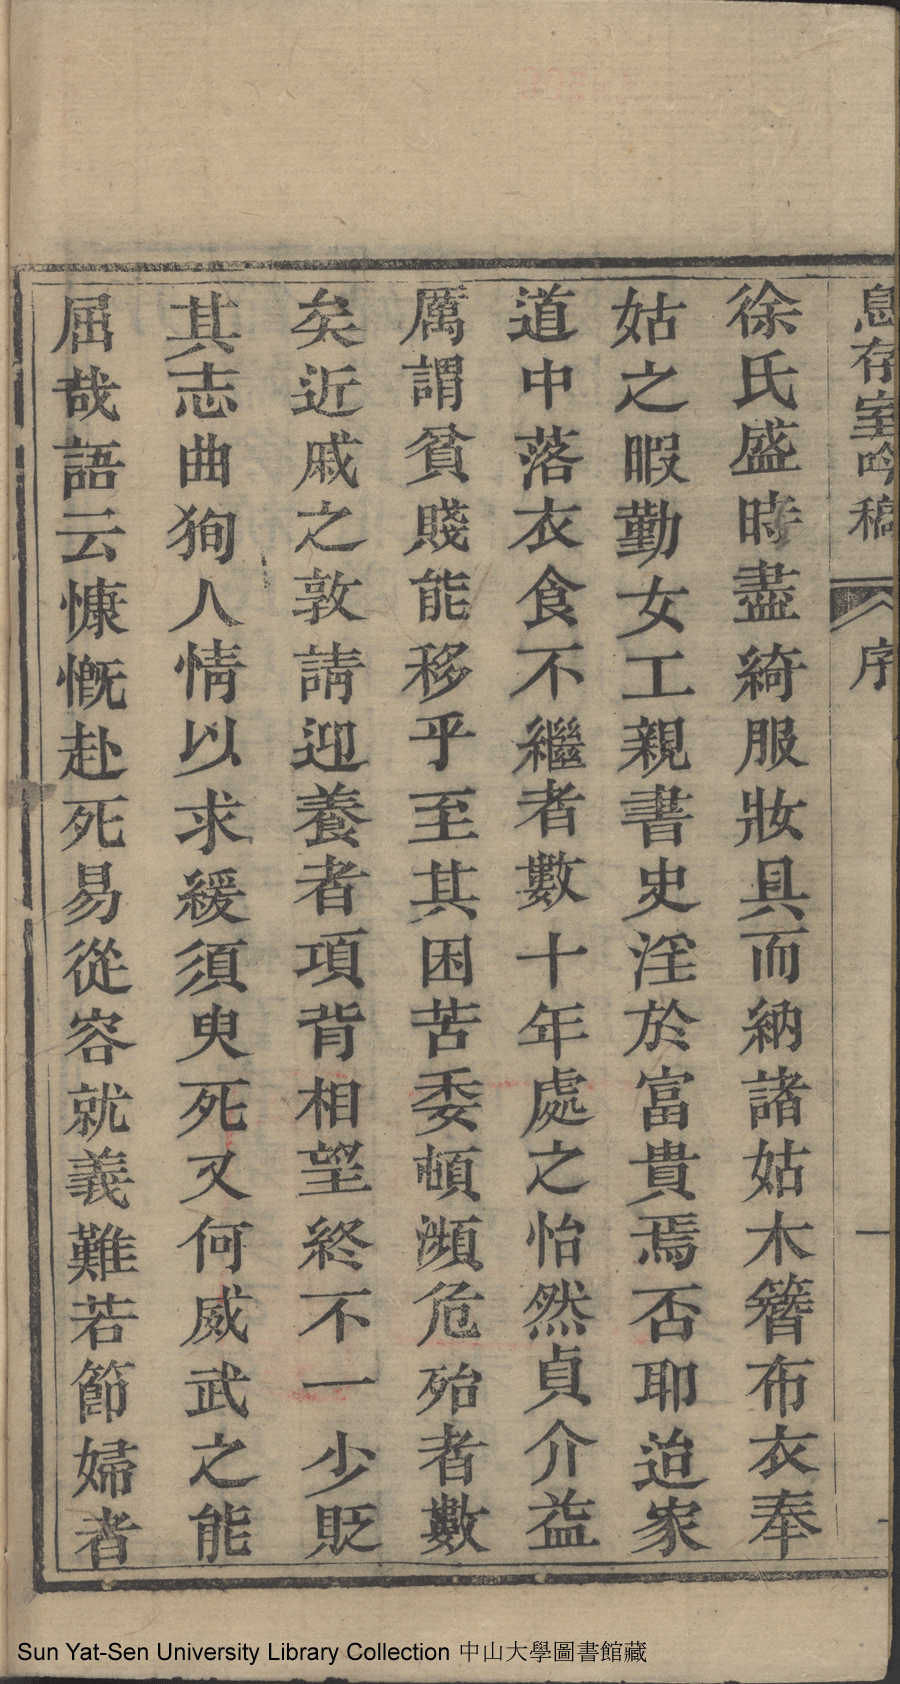 息存室吟稿 序 一
徐氏盛時盡綺服妝具而納諸姑木簪布衣奉
姑之暇勤女工親書史淫於富貴焉否耶迨家
道中落衣食不繼者數十年處之怡然貞介益
厲謂貧賤能移乎至其困苦委頓瀕危殆者數
矣近戚之敦請迎養者項背相望終不一少貶
其志曲狥人情以求緩須臾死又何威武之能
屈哉語云慷慨赴死易從容就義難若節婦者
Sun Yat-Sen University Library Collection 中山大學圖書館藏